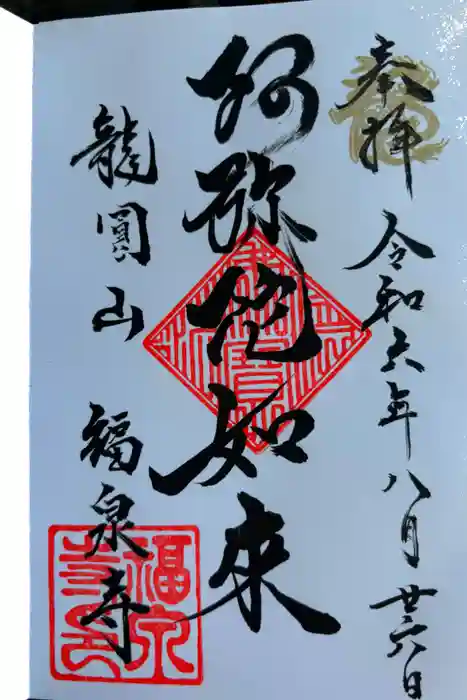 奉拝
令和六年八月廿六日
阿弥陀如来
龍圓山
福泉寺